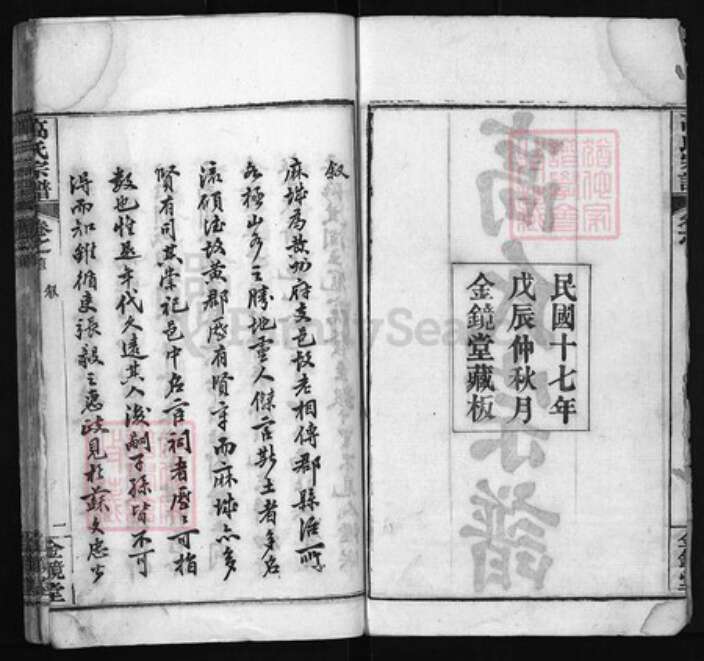 民國十七年
戊辰仲秋月
金鏡堂藏板
高氏宗譜
敘
麻城為黃州府支邑故老相傳郡縣治所
各極山水之勝地靈人傑官斯土者多名
流碩德故黃郡歷有賢守而麻城亦多
賢有司其崇祀邑中名宦祠者歷歷可指
數也惟是年代久遠其人後嗣子孫皆不可
得而知雖循吏張毅之惠政見於蘇文忠公
高氏宗譜
卷之首
敘
二
金鏡堂
FamilySearch